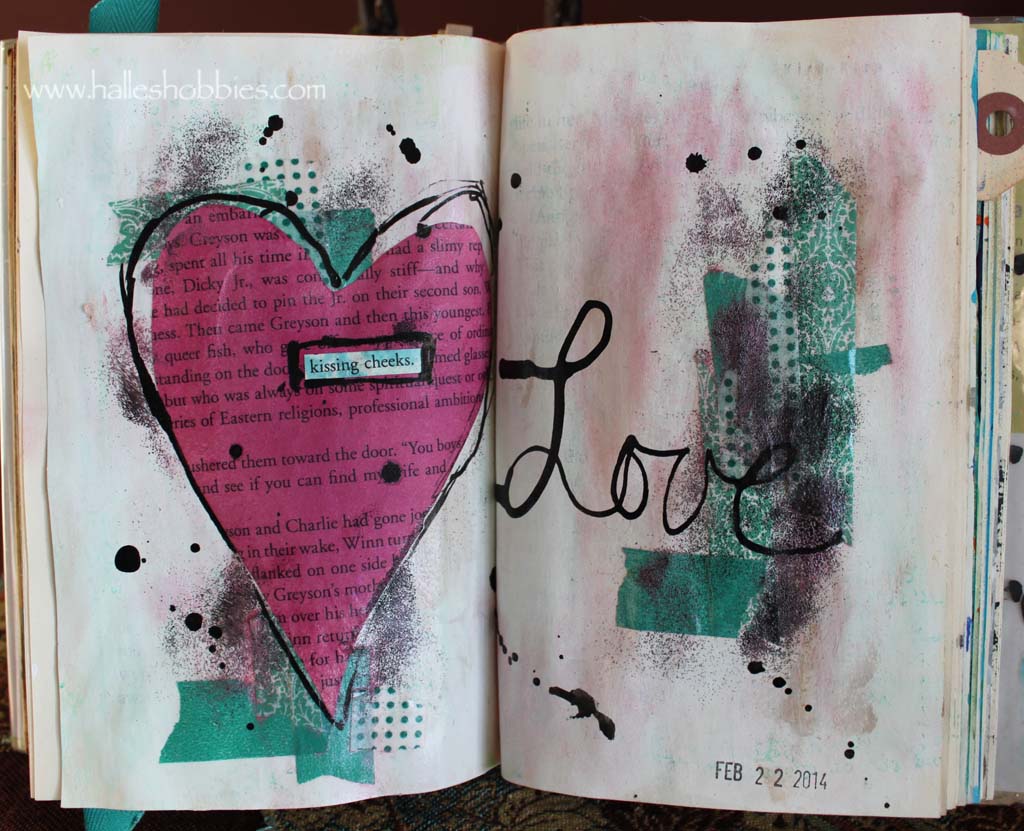 www.halleshobbies.com
an embarr
Greyson was had a slimy rep
spent all his time
ne. Dicky Jr., was stiff—and why
had decided to pin the Jr. on their second son.
ness. Then came Greyson and then this youngest,
queer fish, who of ordin
kissing cheeks.
standing on the doo med glasse
but who was always on some spiritual quest or
ries of Eastern religions, professional ambition
ushered them toward the door. “You boys
nd see if you can find my wife and
Love
son and Charlie had gone
in their wake, Winn tur
flanked on one side
Greyson's moth
over his he
nn return
for h
jus
FEB 2 2 2014